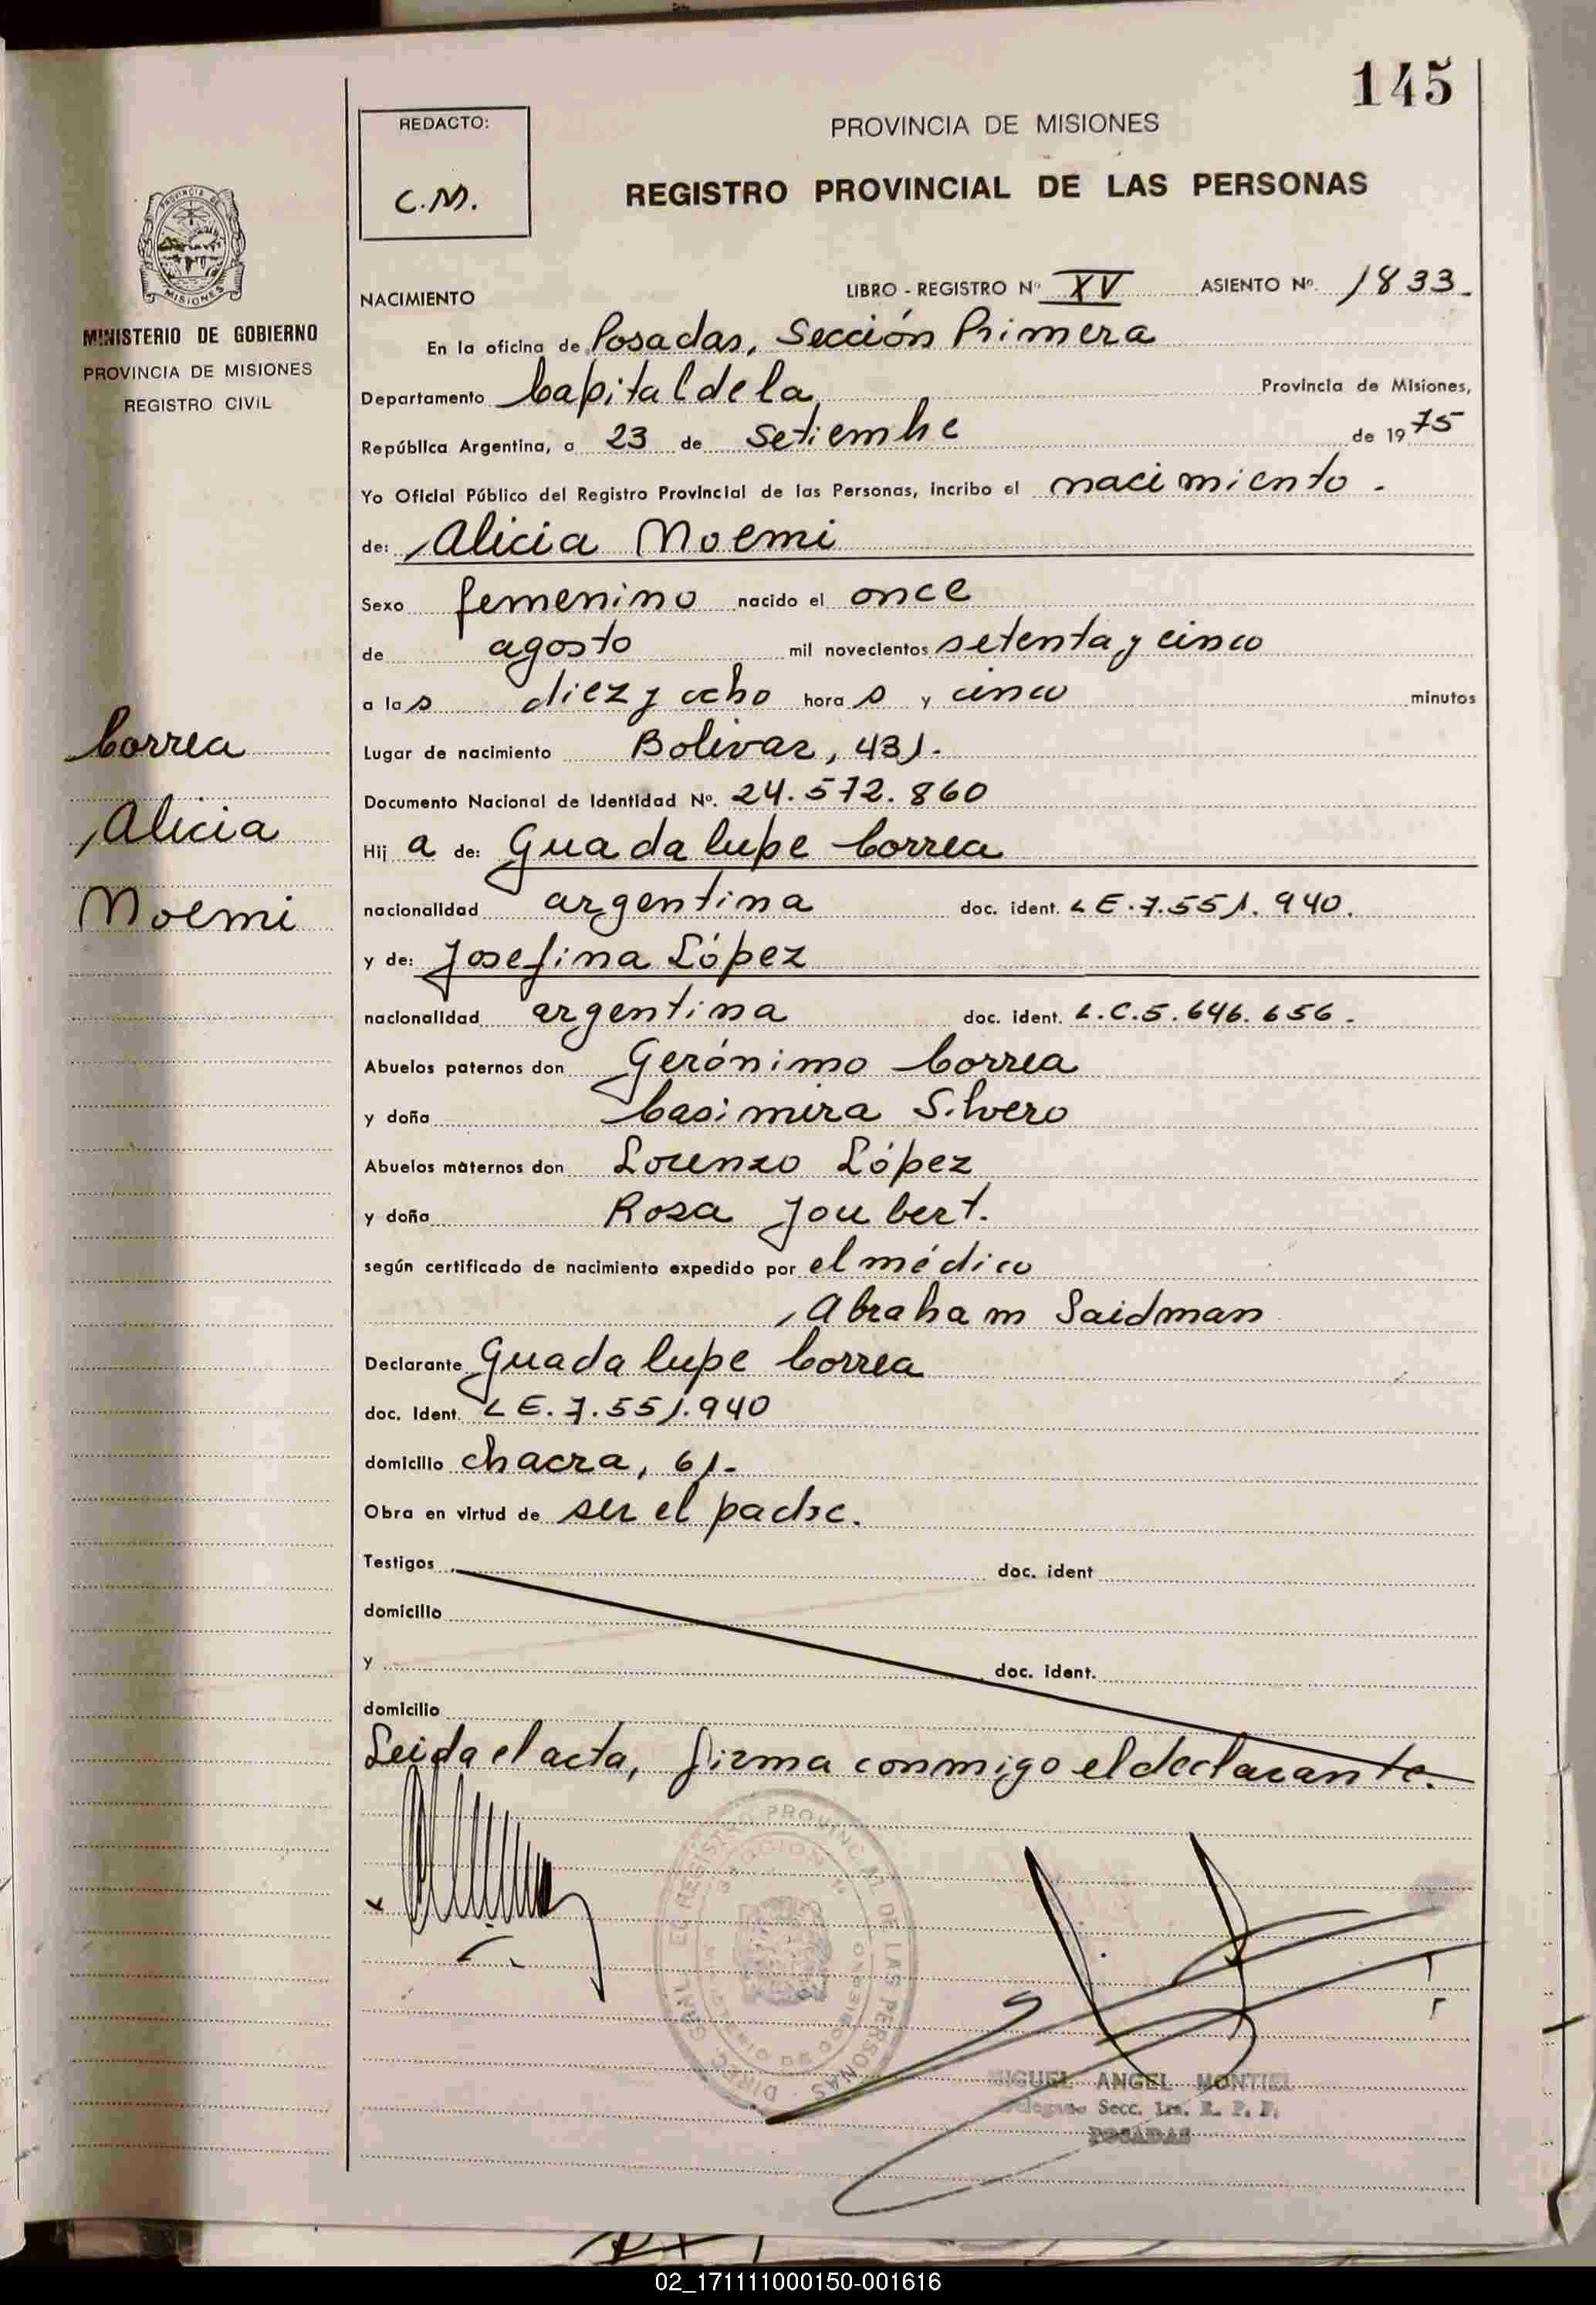 145
REDACTO:
C.M.
PROVINCIA DE MISIONES
REGISTRO PROVINCIAL DE LAS PERSONAS
MINISTERIO DE GOBIERNO
PROVINCIA DE MISIONES
REGISTRO CIVIL
NACIMIENTO LIBRO - REGISTRO Nº XV ASIENTO Nº 1833.
En la oficina de Posadas, Sección Primera
Departamento Capital de la Provincia de Misiones,
República Argentina, a 23 de Setiembre de 1975
Yo Oficial Público del Registro Provincial de las Personas, incribo el nacimiento.
de: Alicia Noemi
Sexo femenino nacido el once
de agosto mil novecientos setenta y cinco
a las diez y ocho horas y cinco minutos
Lugar de nacimiento Bolivar, 431.
Documento Nacional de Identidad Nº. 24.572.860
Hija de: Guadalupe Correa
nacionalidad argentina doc. ident. LE.7.551.940.
y de: Josefina López
nacionalidad argentina doc. ident. L.C.5.646.656.
Abuelos paternos don Gerónimo Correa
y doña Casimira Silvero
Abuelos maternos don Lorenzo López
y doña Rosa Joubert.
según certificado de nacimiento expedido por el médico
Abraham Saidman
Declarante Guadalupe Correa
doc. Ident. LE.7.551.940
domicilio chacra, 61.
Obra en virtud de ser el padre.
Testigos doc. ident
domicilio
y doc. ident.
domicilio
Leida el acta, firma conmigo el declarante.
Correa
Alicia
Noemi
DIREC. GRAL. EL REGISTRO PROVINCIAL DE LAS PERSONAS
MIGUEL ANGEL MONTIEL
Delegado Secc. 1ra. R. P. P.
POSADAS
02_171111000150-001616